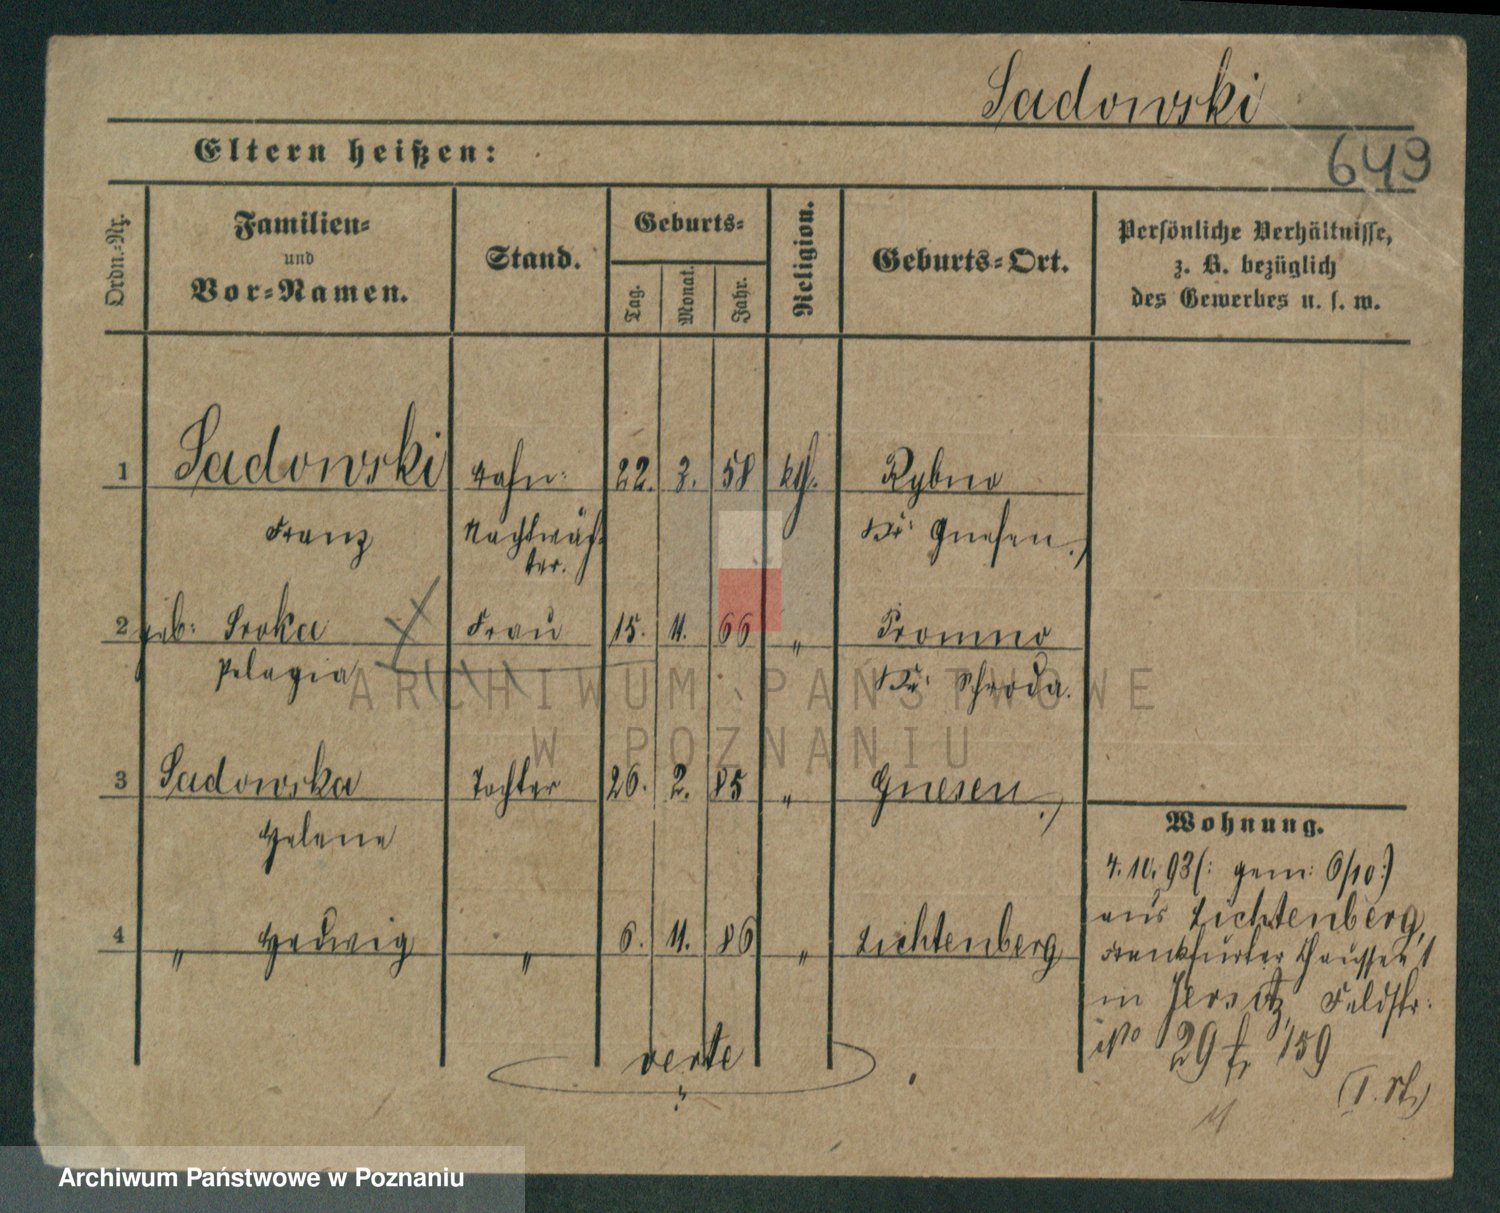 Sadowski
Eltern heißen:
649
Ordn.-Nr.
Familien-
und
Vor-Namen.
Stand.
Geburts-
Tag.
Monat.
Jahr.
Religion.
Geburts-Ort.
Persönliche Verhältnisse,
z. B. bezüglich
des Gewerbes u. s. w.
1 Sadowski 22. 3. 58 kth. Rybno
Franz Nachtwäch- Kr: Gnesen.
ter.
2 geb: Sroka Frau 15. 11. 66 " Promno
Pelagia Kr: Schroda.
3 Sadowska Tochter 26. 2. 85 " Gnesen
Helene
4 " Hedwig " 6. 11. 86 " Lichtenberg
Wohnung.
4. 10. 93 (: gem: 6/10:)
aus Lichtenberg,
Frankfurter Chaussee 1
in Jersitz, Feldstr:
No 29 f. 159
verte
ARCHIWUM PAŃSTWOWE
W POZNANIU
Archiwum Państwowe w Poznaniu